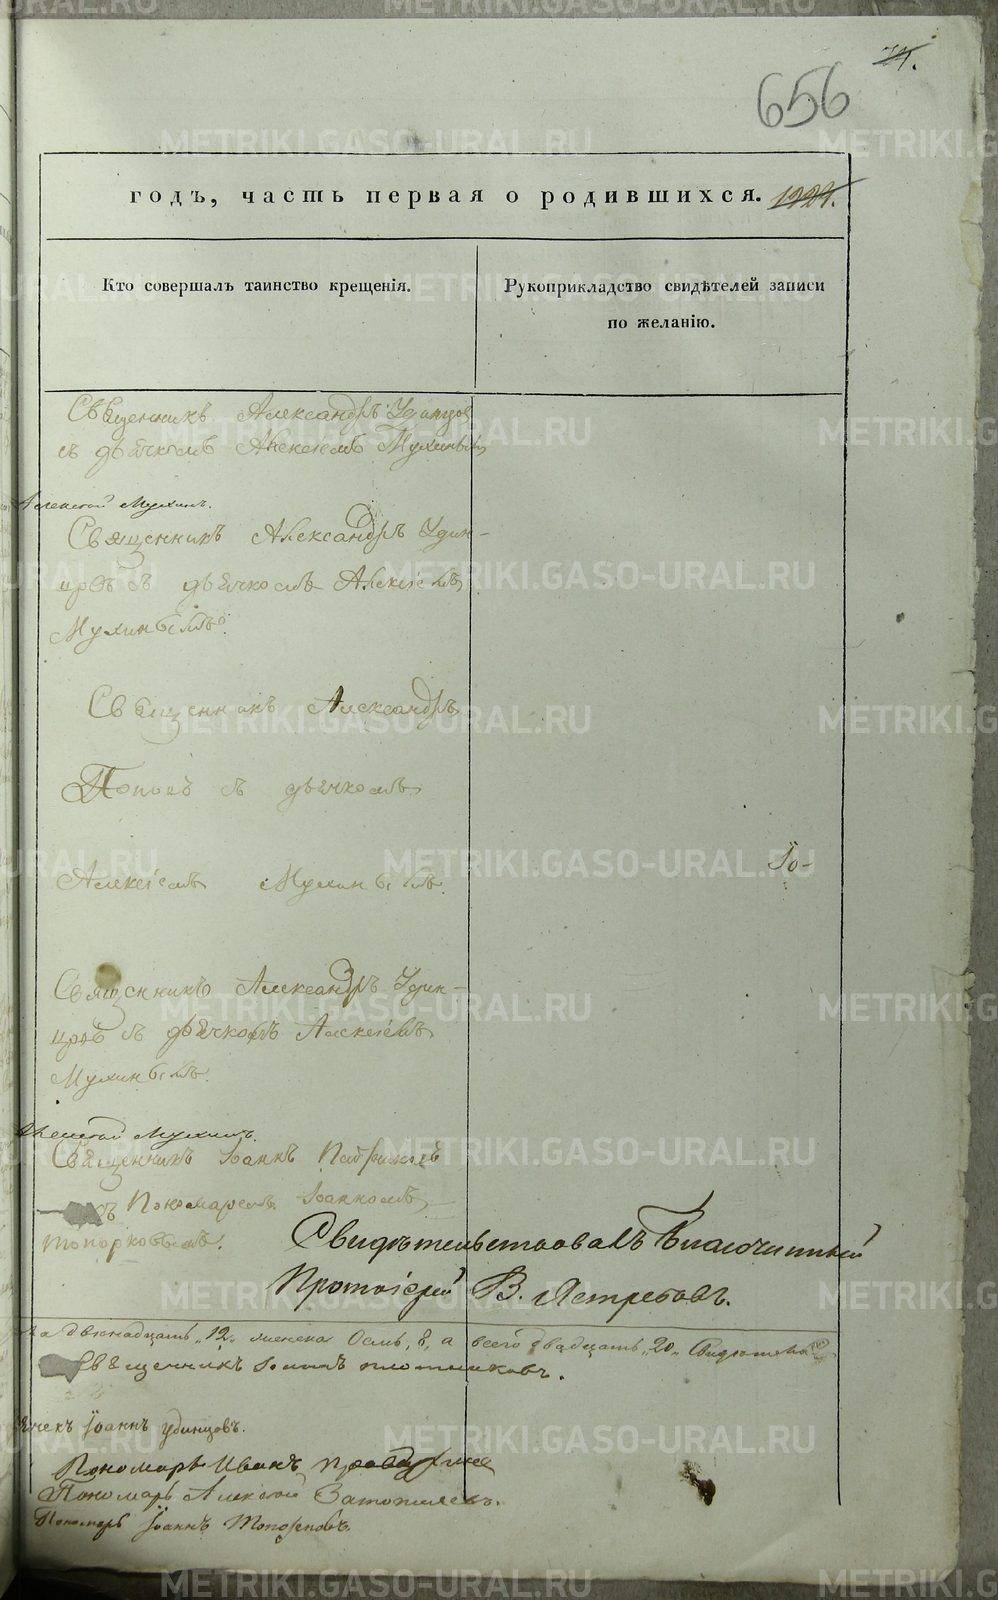 656
годъ, часть первая о родившихся.
Кто совершалъ таинство крещенія.
Рукоприкладство свидѣтелей записи
по желанію.
Священникъ Александръ Удинцов
съ дьячкомъ Алексіемъ Мухинымъ
Алексей Мухинъ.
Священникъ Александръ Удин-
цовъ съ дьячкомъ Алексіемъ
Мухинымъ.
Священникъ Александръ
Поповъ съ дьячкомъ
Алексіемъ Мухинымъ.
Іо-
Священникъ Александръ Удин-
цовъ съ дьячкомъ Алексіемъ
Мухинымъ.
Алексей Мухинъ.
Священникъ Іоаннъ
съ Пономаремъ Іоанномъ
Топорковымъ.
Свидѣтельствовалъ Благочинный
Протоіерей В. Ястребовъ.
двенадцать „12„ женска Осмь, 8, а всего двадцать „20„
Священникъ Іоаннъ Плотниковъ.
Іоаннъ Удинцовъ.
Пономарь Иванъ
Пономарь Алексей
Пономарь Іоаннъ Топорковъ.
METRIKI.GASO-URAL.RU